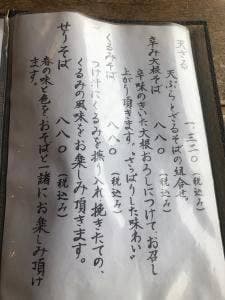 天ざる　一、三二〇（税込み）
天ぷらとざるそばの組合せ。
辛み大根そば　八八〇（税込み）
辛味のきいた大根おろしにつけて、お召し
上がり頂きます。"さっぱりした味わい"
くるみそば　八八〇（税込み）
つけ汁にくるみを擦り入れ、挽きたての、
くるみの風味をお楽しみ頂きます。
せりそば　八八〇（税込み）
春の味と色をおそばと一諸にお楽しみ頂け
ます。